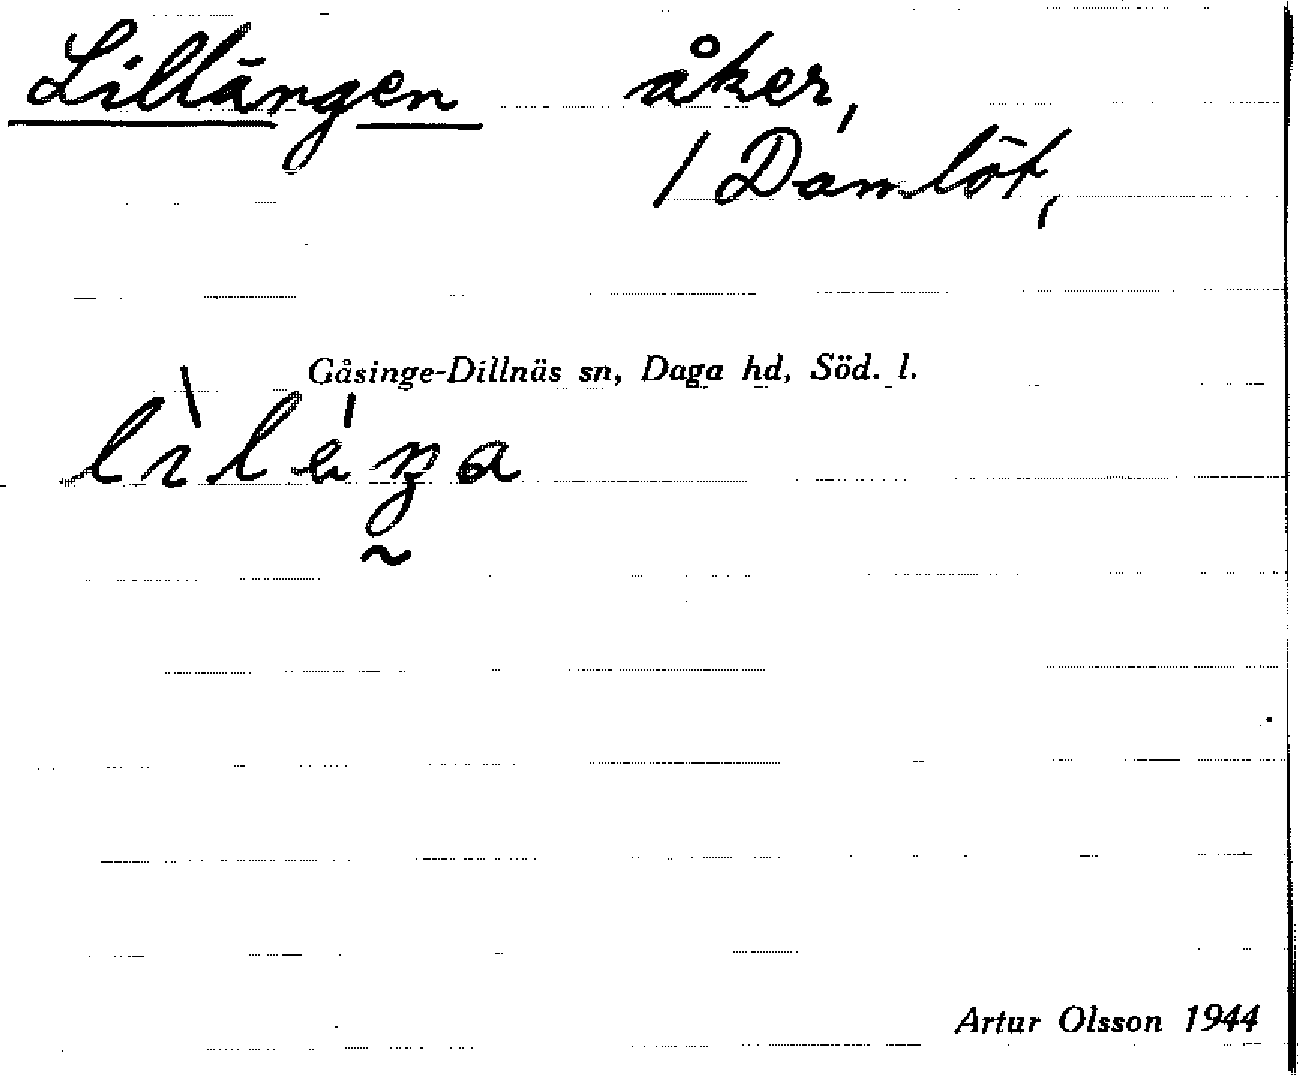 Lillängen åker,
/ Damlöt,
Gåsinge-Dillnäs sn, Daga hd, Söd. l.
Artur Olsson 1944